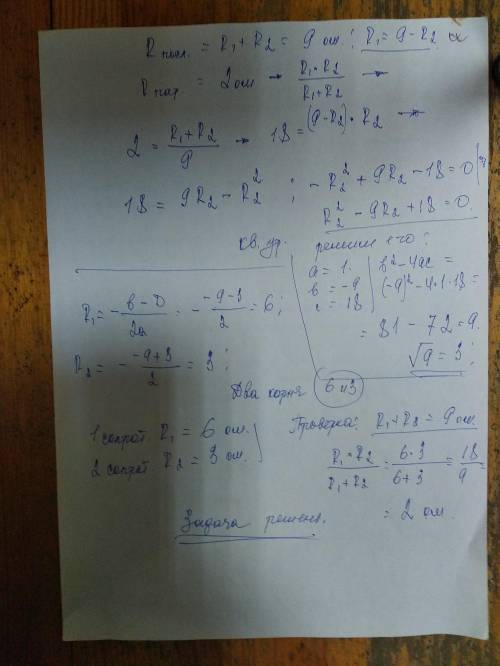 R посл. = R₁ + R₂ = 9 ом. ; R₁ = 9 - R₂
R пар. = 2 ом → R₁ • R₂ / R₁ + R₂ →
2 = R₁ + R₂ / 9 → 18 = (9 - R₂) • R₂ →
18 = 9R₂ - R₂² ; - R₂² + 9R₂ - 18 = 0
R₂² - 9R₂ + 18 = 0.
кв. ур. решим его:
a = 1. b² - 4ac =
b = -9 (-9)² - 4 • 1 • 18 =
c = 18
= 81 - 72 = 9.
√9 = 3 ;
R₁ = - b - D / 2a = - -9 - 3 / 2 = 6 ;
R₂ = - -9 + 3 / 2 = 3 ;
Два корня 6 и 3
1 сопрот R₁ = 6 ом.
2 сопрот R₂ = 3 ом.
Проверка: R₁ + R₂ = 9 ом.
R₁ • R₂ / R₁ + R₂ = 6 • 3 / 6 + 3 = 18 / 9
= 2 ом.
Задача решена.